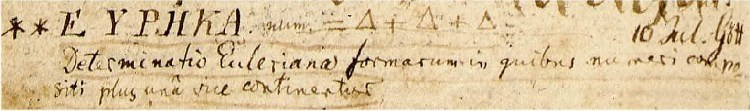 ** ΕΥΡΗΚΑ. num. = Δ + Δ + Δ. 10 Jul. Gött
Determinatio Euleriana formarum in quibus numeri compo
siti plus unâ vice continentur